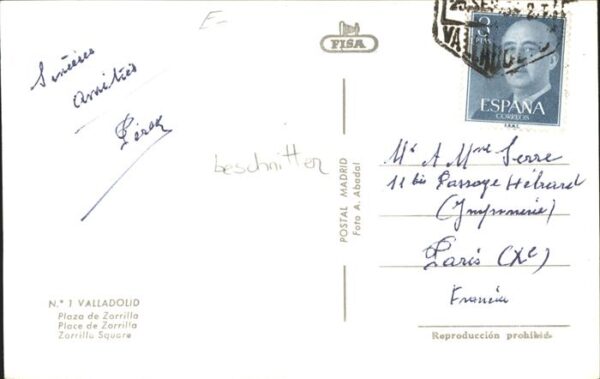 E-
Sincères
Amitiés
beschnitten
N.º 1 VALLADOLID
Plaza de Zorrilla
Place de Zorrilla
Zorrilla Square
FISA
POSTAL MADRID
Foto A. Abadal
3
PTAS
ESPAÑA
CORREOS
VALLADOLID
Mr & Mme Serre
11 bis Passage Hébrard
(Imprimerie)
Paris (Xe)
Francia
Reproducción prohibida